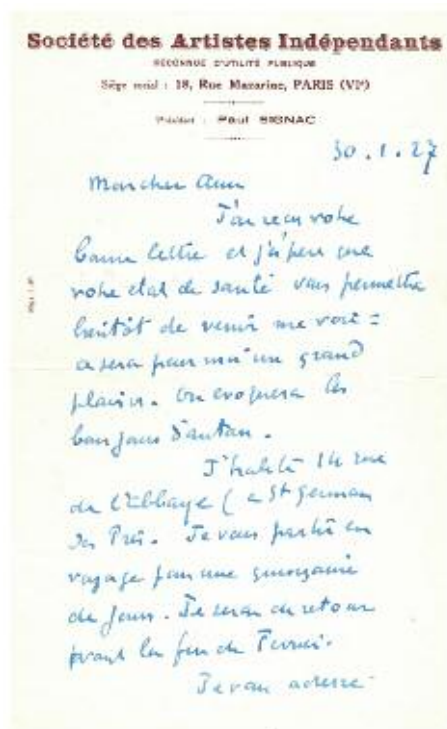 Société des Artistes Indépendants
RECONNUE D'UTILITÉ PUBLIQUE
Siège social : 18, Rue Mazarine, PARIS (VIe)
Président : Paul SIGNAC
30.1.27
Mon cher Ami
J'ai reçu votre
bonne lettre et j'espère que
votre état de santé vous permettra
bientôt de venir me voir =
ce sera pour moi un grand
plaisir. On évoquera les
bons jours d'antan.
J'habite 14 rue
de l'Abbaye ( a St Germain
des Prés. Je vais partir en
voyage pour une quinzaine
de jours. Je serai de retour
avant la fin de Février.
Je vous adresse